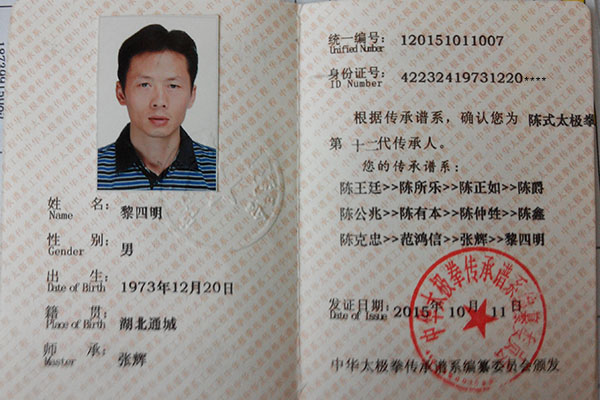 姓 名： 黎四明
Name
性 别： 男
Gender
出 生： 1973年12月20日
Date of Birth
籍 贯： 湖北通城
Place of Birth
师 承： 张辉
Master
统一编号： 120151011007
Unified Number
身份证号： 42232419731220****
ID Number
根据传承谱系，确认您为 陈式太极拳
第 十二代传承人。
您的传承谱系：
陈王廷>>陈所乐>>陈正如>>陈爵
陈公兆>>陈有本>>陈仲甡>>陈鑫
陈克忠>>范鸿信>>张辉>>黎四明
发证日期： 2015年 10月 11日
Date of Issue
中华太极拳传承谱系编纂委员会颁发